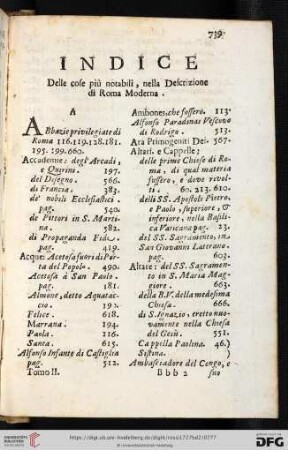 739
INDICE
Delle cose più notabili, nella Descrizione
di Roma Moderna.
A
Abbazie privilegiate di
Roma 116.119.128.181.
195. 599.660.
Accademie: degl'Arcadi,
e Quirini. 197.
del Disegno. 566.
di Francia. 383.
de' nobili Ecclesiastici.
pag. 540.
de Pittori in S. Marti-
na. 582.
di Propaganda Fide.
pag. 419.
Acque: Acetosa fuori di Por-
ta del Popolo. 490.
Acetosa à San Paolo.
pag. 181.
Almone, detto Aquatac-
cio. 192.
Felice. 618.
Marrana. 194.
Paola. 116.
Santa. 615.
Alfonso Infante di Castiglia
pag. 512.
Tomo II.
Ambones, che fossero. 113.
Alfonso Paradinas Vescovo
di Rodrigo. 513.
Ara Primogeniti Dei. 567.
Altari. e Cappelle;
delle prime Chiese di Ro-
ma, di qual materia
fussero, e dove rivol-
ti. 60. 213. 610.
delli SS. Apostoli Pietro,
e Paolo, superiore, &
inferiore, nella Basili-
ca Vaticana pag. 23.
del SS. Sagramento, in
San Giovanni Laterano.
pag. 603.
Altare: del SS. Sagramen-
to in S. Maria Mag-
giore. 663.
della B.V. della medesima
Chiesa. 666.
di S. Ignazio, eretto nuo-
vamente nella Chiesa
del Gesù. 551.
Cappella Paolina. 46.)
Sistina. )
Ambasciadore del Congo, e
Bbb 2
suo
UNIVERSITÄTS-
BIBLIOTHEK
HEIDELBERG
https://digi.ub.uni-heidelberg.de/diglit/rossi1727bd2/0777
© Universitätsbibliothek Heidelberg
gefördert durch die
DFG